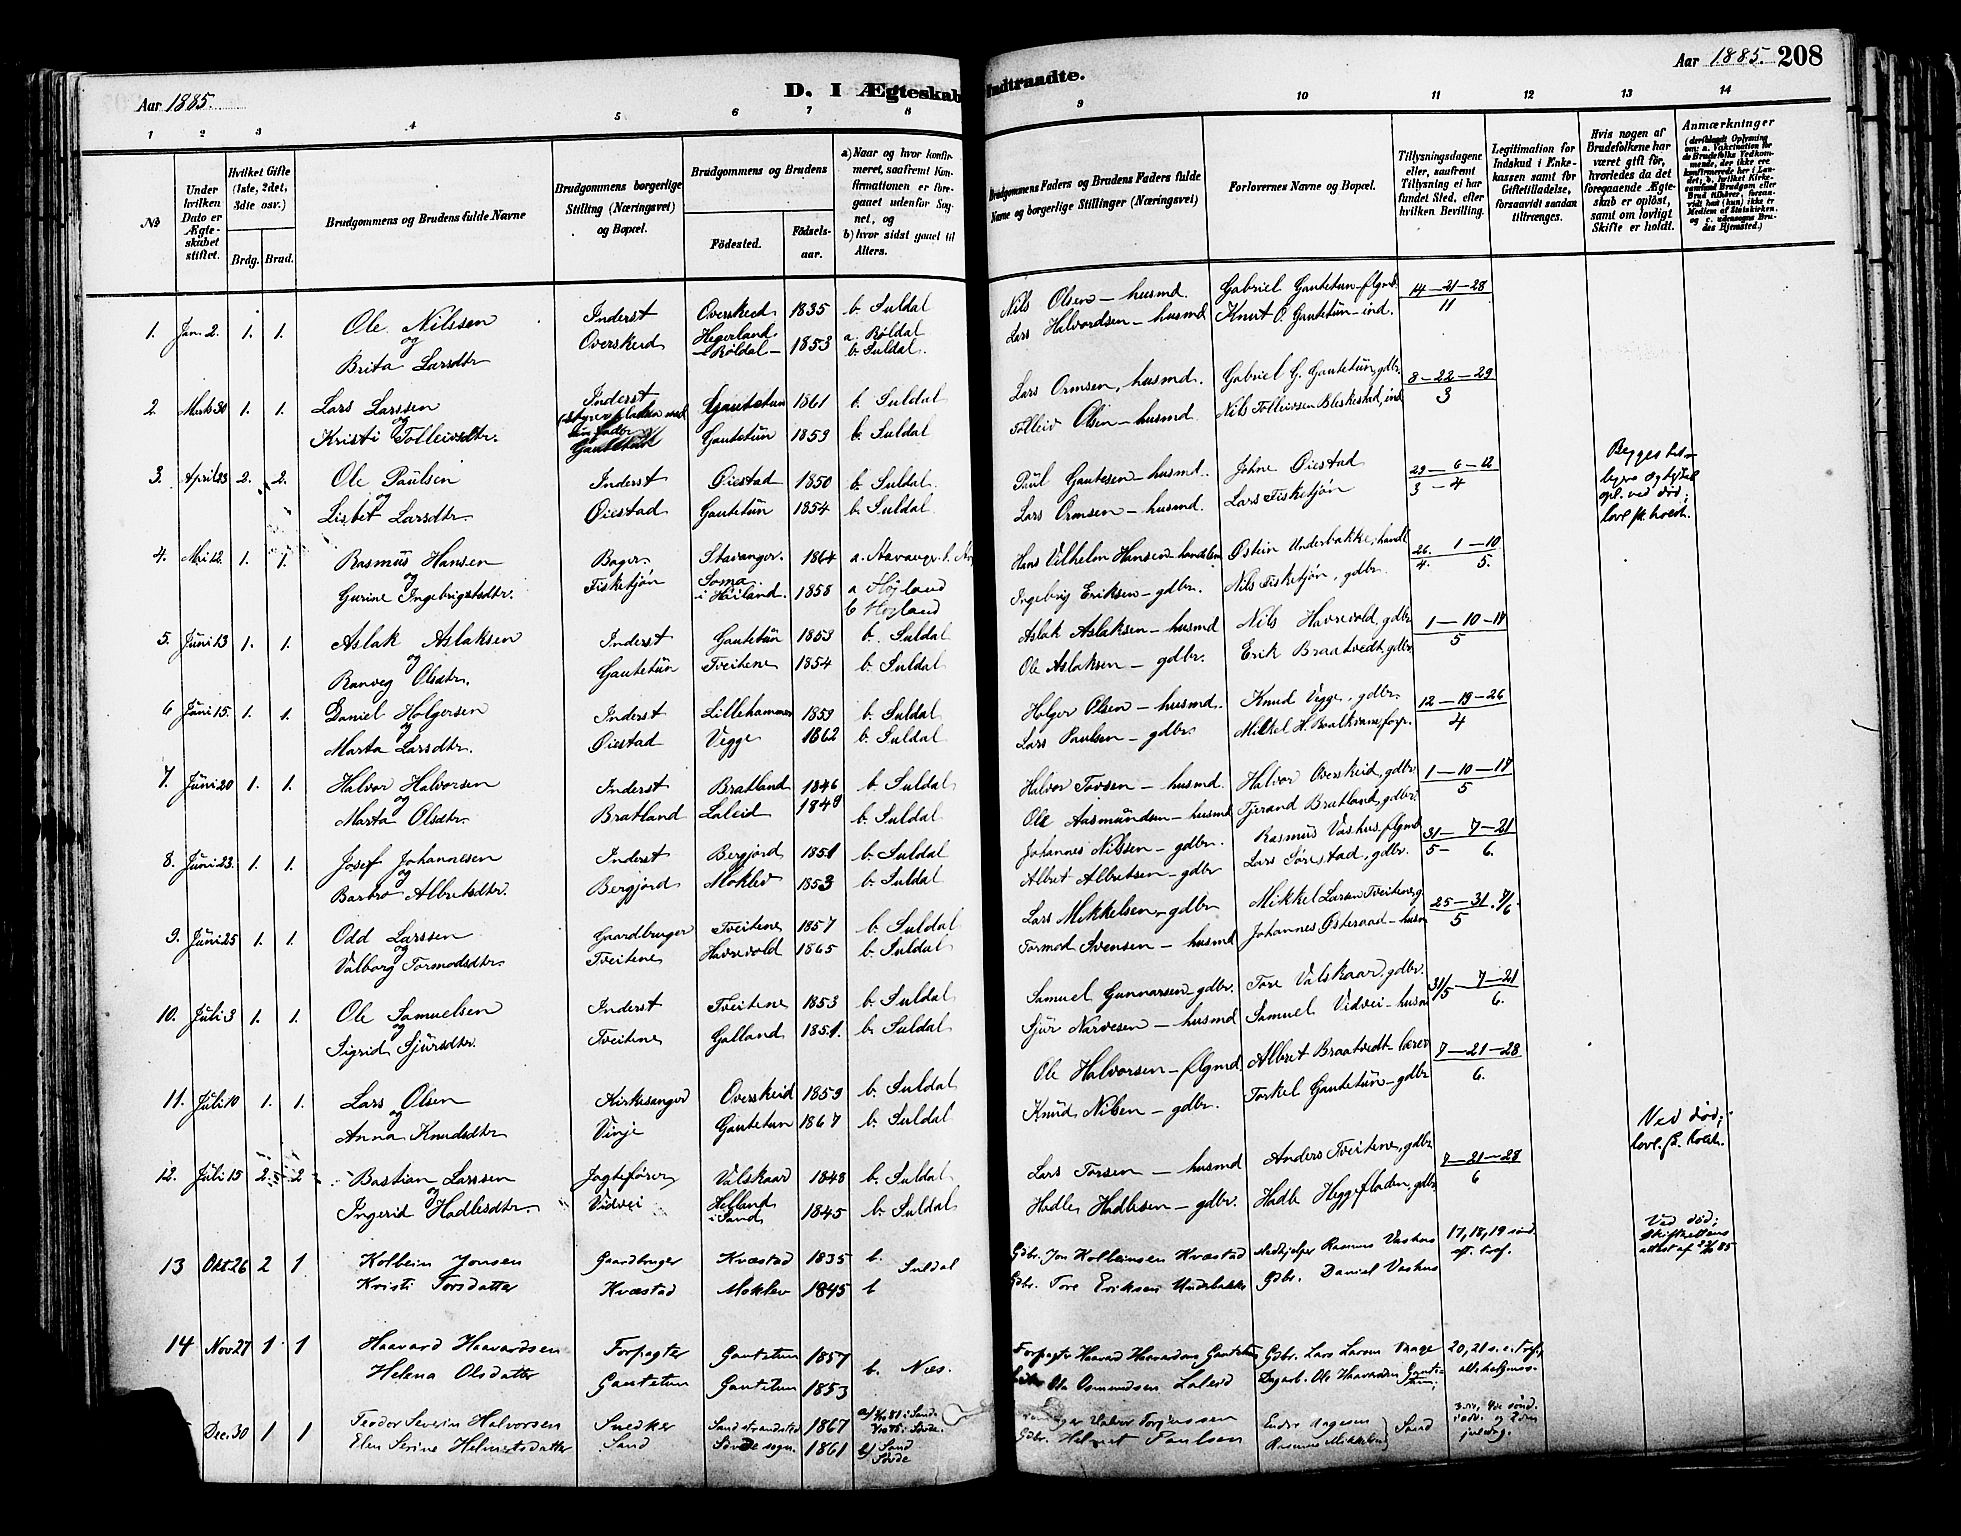 Aar 1885.
D. I Ægteskab Indtraadte.
Aar 1885. 208
1 2 3 4 5 6 7 8 9 10 11 12 13 14
№
Under hvilken Dato er Ægteskabet stiftet.
Hvilket Gifte (1ste, 2det, 3die osv.)
Brdg. Brud.
Brudgommens og Brudens fulde Navne
Brudgommens borgerlige Stilling (Næringsvei) og Bopæl.
Brudgommens og Brudens
Fødested.
Fødselsaar.
a) Naar og hvor konfirmeret, saafremt Konfirmationen er foregaaet udenfor Sognet, og
b) hvor sidst gaaet til Alters.
Brudgommens Faders og Brudens Faders fulde Navne og borgerlige Stillinger (Næringsvei)
Forlovernes Navne og Bopæl.
Tillysningsdagene eller, saafremt Tillysning ei har fundet Sted, efter hvilken Bevilling.
Legitimation for Indskud i Enkekassen samt for Giftetilladelse, forsaavidt saadan tiltrænges.
Hvis nogen af Brudefolkene har været gift før, hvorledes da det foregaaende Ægteskab er opløst, samt om lovligt Skifte er holdt.
Anmærkninger
(deriblandt Oplysning om: a. Vakcination for de Brudefolks Vedkommende, der ikke ere konfirmerede her i Landet; b. hvilket Kirkesamfund Brudgom eller Brud tilhører, forsaavidt han (hun) ikke er Medlem af Statskirken, og c. udensogns Brudes Hjemsted.)
1. Jan. 2. 1. 1. Ole Nilssen Inderst Overskeid 1835 b. Suldal Nils Olsen – husmd. Gabriel Gautetun – flgmd. 14–21–28
og Overskeid Hegerland 1853 a. Røldal Lars Halvordsen – husmd Knut O. Gautetun – ind. 11
Brita Larsdtr Røldal – b. Suldal.
2. Marts 30 1. 1. Lars Larssen Inderst Gautetun 1861 b. Suldal Lars Ormsen, husmd. Gabriel G. Gautetun, gdbr. 8–22–29
og
Kristi Tolleivsdtr. Gautetun Gautetun 1859 b. Suldal Tolleiv Olsen – husmd. Nils Tolleivsen Bleskestad, ind 3
3. April 23 2. 2. Ole Paulsen Inderst Øiestad 1850 b. Suldal. Paul Gautesen – husmd. Johne Øiestad 29–6–12
og
Lisbet Larsdtr. Øiestad Gautetun 1854 b. Suldal Lars Ormsen – husmd. Lars Fisketjøn 3–4
opl. ved død;
lovl. sk. holdt.
4. Mai 12. 1. 1. Rasmus Hansen Bager. Stavanger. 1864 a. Stavanger Hans Vilhelm Hansen – Østein Underbakke, handl 26. 1–10
og Fisketjøn Soma
Gurine Ingebrigtsdtr. i Høiland. 1858 a Høiland Ingebrig Eriksen – gdbr. Nils Fisketjøn, gdbr. 4. 5.
b Høiland
5. Juni 13 1. 1. Aslak Aslaksen Inderst Gautetun 1859 b. Suldal Aslak Aslaksen – husmd Nils Havrevold, gdbr 1–10–14
og
Ranveg Olsdtr. Gautetun Tveitene 1854 b. Suldal Ole Aslaksen – gdbr. Erik Braatvedt, gdbr 5
6 Juni 15. 1. 1. Daniel Holgersen Inderst Lillehammer 1859 b. Suldal Holger Olsen – husmd. Knud Vegge, gdbr. 12–19–26
og
Marta Larsdtr. Øiestad Vegge 1862 b. Suldal Lars Paulsen – gdbr. 4
7. Juni 20 1. 1. Halvor Halvorsen Inderst Bratland 1846 b. Suldal Halvor Torsen – husmd. Halvor Overskeid, gdbr 1–10–14
og
Marta Olsdtr. Bratland Laleid 1849 b. Suldal Ole Aasmundsen – husmd Tjerand Bratland, gdbr. 5
8. Juni 23. 1. 1. Josef Johannesen Inderst Bergjord 1851 b. Suldal Johannes Nilssen – gdbr. Rasmus Vashus, flgmd 31–7–21
og
Barbro Albretsdtr. Bergjord Moklev 1853 b. Suldal Albret Albretsen – gdbr Lars Sørestad, gdbr. 5– 6.
9. Juni 25 1. 1. Odd Larssen Gaardbruger Tveitene 1857 b. Suldal Lars Mikkelsen, gdbr Mikkel Larsen Tveitene, g 25–31. 7/6.
og
Valborg Tormodsdtr. Tveitene Havrevold 1865 b. Suldal Tormod Svensen – husmd Johannes Østeraad – husm 5
10. Juli 3 1. 1. Ole Samuelsen Inderst Tveitene 1853 b. Suldal Samuel Gunnarsen – gdbr. Tore Valskaar, gdbr. 31/5–7–21
og
Sigrid Sjursdtr. Tveitene Galland 1851. b. Suldal Sjur Narvesen – husmd Samuel Vidvei – husm 6.
11. Juli 10 1. 1. Lars Olsen Kirkesanger Overskeid 1859 b. Suldal Ole Halvorsen – flgmd. Albret Braatvedt – lærer 7–21–28
og
Anna Knudsdtr Vinje Gautetun 1867 b. Suldal Knud Nilsen – gdbr. Torkel Gautetun – gdbr 6.
12. Juli 15 2. 2 Bastian Larssen Jagtefører Valskaar 1848 b. Suldal Lars Torsen – husmd Anders Tveitene, gdbr 7–21–28 Ved død;
og lovl. sk. holdt.
Ingerid Hadlesdtr. Vidvei Helland i Sand 1845 b. Suldal Hadle Hadlesen – gdbr. Hadle Heggefladen, gdbr. 6
13 Okt 26 2 1 Kolbein Jonsen Gaardbruger Kvæstad 1835 b. Suldal Gdbr. Jon Kolbeinsen Kvæstad Medhjelper Rasmus Vashus 17, 18, 19 sønd. Ved død;
Kristi Torsdatter Kvæstad Moklev 1845 b Gdbr. Tore Eriksen Underbakke Gdbr. Daniel Vashus ef. tref. Skifterettens attest af
14 Nov 27 1 1 Haavard Haavardsen Forpagter Gautetun 1857 b. Næs. Forpagter Haavard Haavardsen Gautetun Gdbr. Lars Larsen 20, 21 s. e. tref.
Helena Olsdatter Gautetun Gautetun 1853 Ole Osmundsen Laleid Ole Haavardsen Gautetun;
Dec. 30 1 1 Teodor Severin Halvorsen Snedker Sandstrandsted 1867 Halvor Torgersen Endre Aagesen Sand
Elen Serine Helmetsdatter Sand Søvde sogn. 1861 b) Sand Søvde Gdbr. Helmet Paulsen Rasmus Mikkelsen